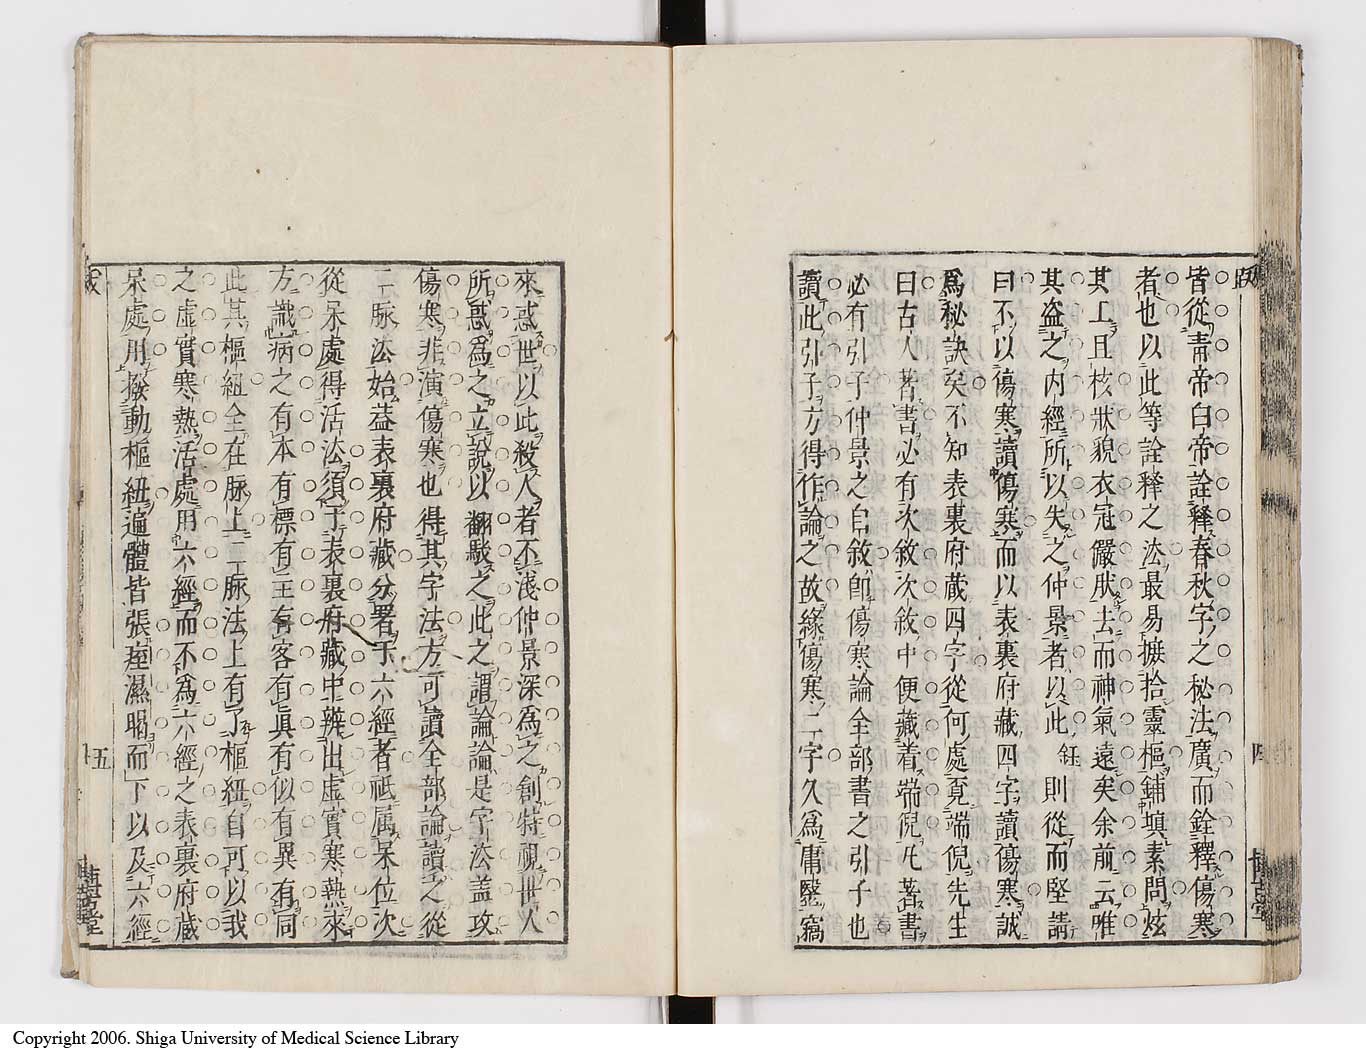 皆從青帝白帝詮釋春秋字之秘法廣而銓釋傷寒
者也以此等詮釋之法最易摭拾靈樞鋪填素問炫
其上且核狀貌衣冠儼肰去而神氣遠矣余前云唯
其盗之内經所以失之仲景者以此鈺則從而堅請
曰不以傷寒讀傷寒而以表裏府藏四字讀傷寒誠
爲秘訣矣不知表裏府蔵四字從何處覓端倪先生
曰古人著書必有次敘次敘中便藏着端倪凡著書
必有引子仲景之自敘卽傷寒論全部書之引子也
讀此引子方得作論之故緣傷寒二字久爲庸醫竊
跋
四
來惑世以此殺人者不淺仲景深爲之創特視世人
所惑爲之立說以翻駁之此之謂論論是字法蓋攻
傷寒非演傷寒也得其字法方可讀全部論讀之從
二脉法始葢表裏府藏分署于六經者祗属呆位次
從呆處得活法須于表裏府藏中辨出虚實寒熱來
方識病之有本有標有主有客有眞有似有異有同
此其樞紐全在脉上二脉法上有了樞紐自可以我
之虚實寒熱活處用六經而不為六經之表裏府蔵
呆處用撥動樞紐遍體皆張痓濕暍而下以及六經
五
Copyright 2006. Shiga University of Medical Science Library